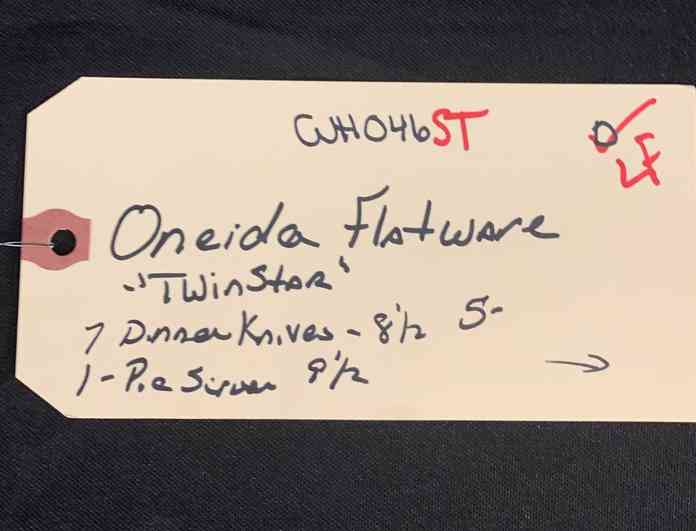 CWH046ST
LF
Oneida Flatware
"TwinStar"
7 Dinner Knives - 8 1/2 5-
1 - Pie Server 9 1/2